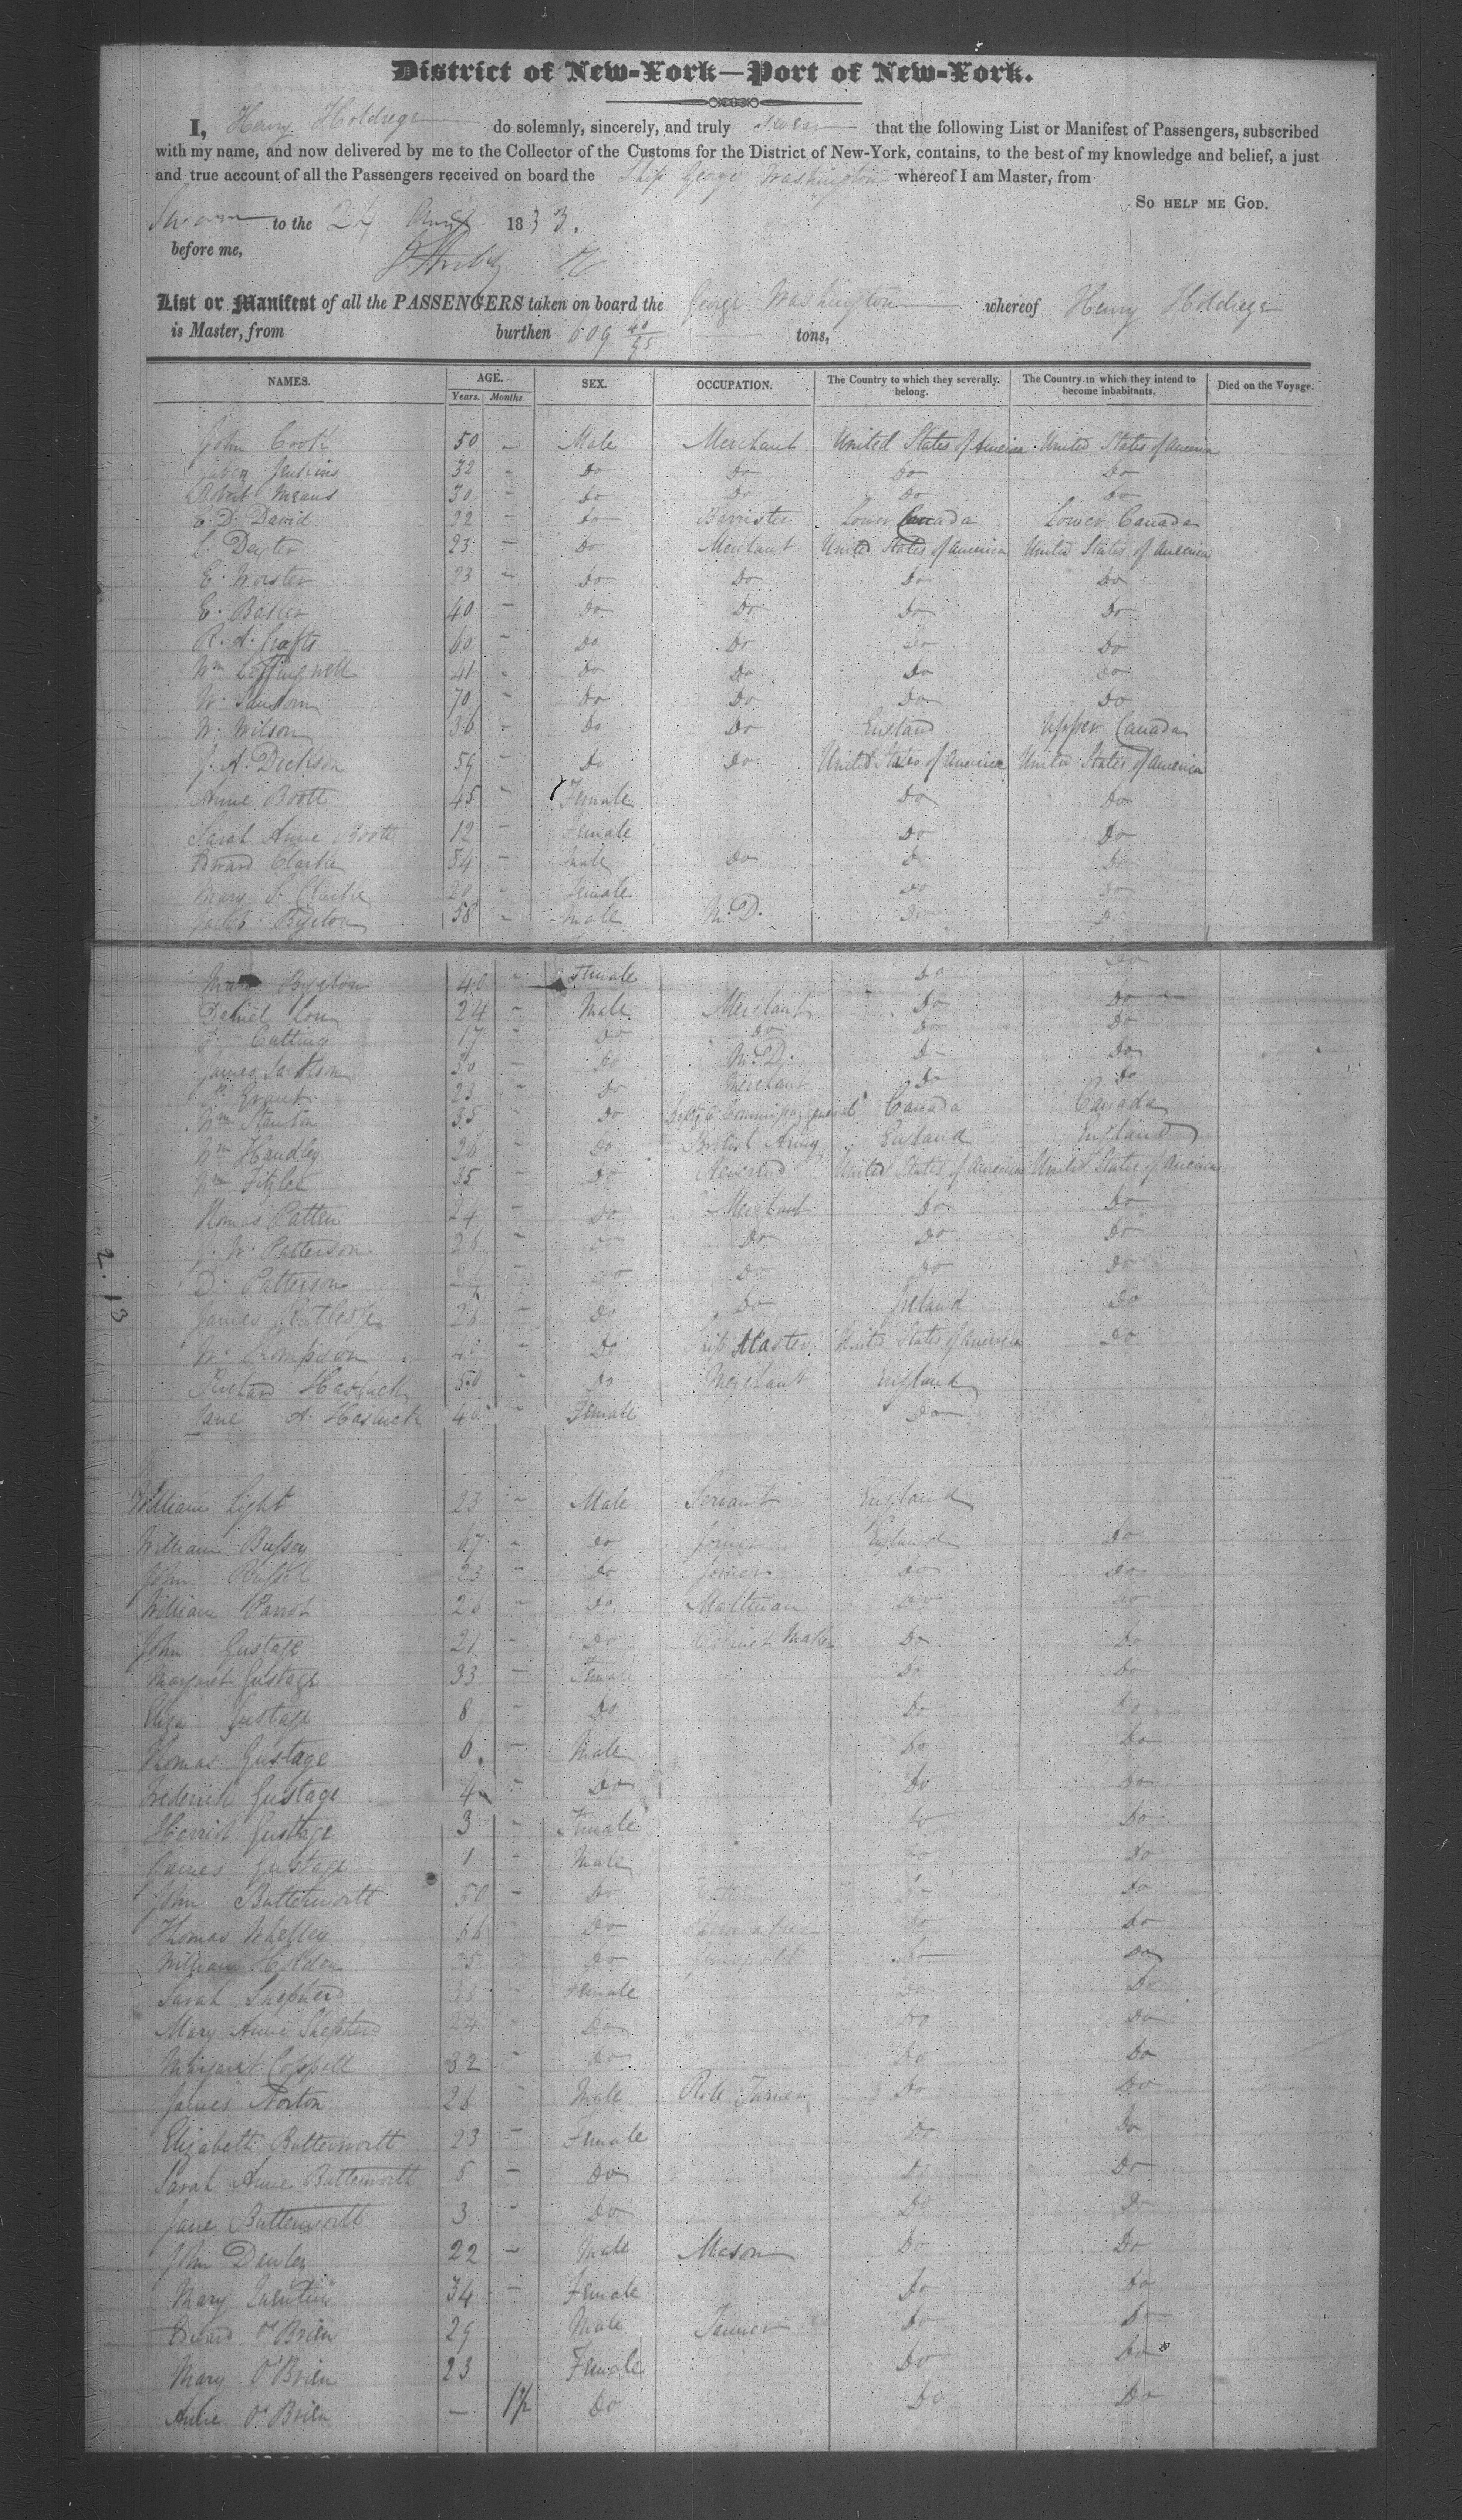 District of New-York—Port of New-York.
I, Henry Holdrege do solemnly, sincerely, and truly swear that the following List or Manifest of Passengers, subscribed
with my name, and now delivered by me to the Collector of the Customs for the District of New-York, contains, to the best of my knowledge and belief, a just
and true account of all the Passengers received on board the Ship George Washington whereof I am Master, from
So help me God.
Sworn to the 24 1833.
before me,
List or Manifest of all the PASSENGERS taken on board the George Washington whereof Henry Holdrege
is Master, from burthen 609 40/95 tons,
NAMES. AGE. SEX. OCCUPATION. The Country to which they severally belong. The Country in which they intend to become inhabitants. Died on the Voyage.
Years. Months.
John Boott 50 - Male Merchant United States of America United States of America
Jenkins 32 - Do Do Do Do
Robert Means 30 - Do Do Do Do
E. D. David 22 - Do Barrister Lower Canada Lower Canada
L. Dexter 23 - Do Merchant United States of America United States of America
E. Worster 23 - Do Do Do Do
E. Baller 40 - Do Do Do Do
R. A. Crafts 60 - Do Do Do Do
Wm Leffingwell 41 - Do Do Do Do
W. Sandom 70 - Do Do Do Do
W. Wilson 36 - Do Do England Upper Canada
J. A. Dickson 59 - Do Do United States of America United States of America
Anne Boott 45 - Female Do Do
Sarah Anne Boott 12 - Female Do Do
Edward Clarke 34 - Male Do Do Do
Mary S. Clarke 20 - Female Do Do
Jacob Bigelow 58 - Male M.D. Do Do
Mary Bigelow 40 - Female Do Do
Daniel Low 24 - Male Merchant Do Do
F. Cutting 17 - Do Do Do Do
James Jackson 30 - Do M.D. Do Do
Grant 23 - Do Merchant Do Do
Wm Stanton 35 - Do Depty A. Commissary general Canada Canada
Wm Handley 26 - Do British Army England England
Wm Fitzlee 35 - Do Reverend United States of America United States of America
Thomas Patten 24 - Do Merchant Do Do
J. W. Patterson 26 - Do Do Do Do
D. Patterson - Do Do Do Do
James Rutledge 26 - Do Do Ireland Do
W. Thompson 40 - Do Ship Master United States of America Do
Richard Hasluck 50 - Do Merchant England
Jane A. Hasluck 40 - Female Do
William Light 23 - Male Servant England
William Bussey 67 - Do Joiner England Do
John Russel 23 - Do Joiner Do Do
William Parrot 26 - Do Maltman Do Do
John Gustage 21 - Do Cabinet Maker Do Do
Margaret Gustage 33 - Female Do Do
Eliza Gustage 8 - Do Do Do
Thomas Gustage 6 - Male Do Do
Frederick Gustage 4 - Do Do Do
Harriet Gustage 3 - Female Do Do
James Gustage 1 - Male Do Do
John Butterworth 50 - Do Do Do
Thomas Whelley 66 Do Do Do
William Holden 35 Do Gunsmith Do Do
Sarah Shepherd 38 - Female Do Do
Mary Anne Shepherd 24 - Do Do Do
Margaret Coppell 32 - Do Do Do
James Norton 26 - Male Turner Do Do
Elizabeth Butterworth 23 - Female Do Do
Sarah Anne Butterworth 5 - Do Do Do
Jane Butterworth 3 - Do Do Do
John Dawley 22 - Male Mason Do Do
Mary Quentin 34 - Female Do Do
Edward O'Brien 29 Male Tanner Do Do
Mary O'Brien 23 Female Do Do
Anne O'Brien — 1½ Do Do Do
2.13